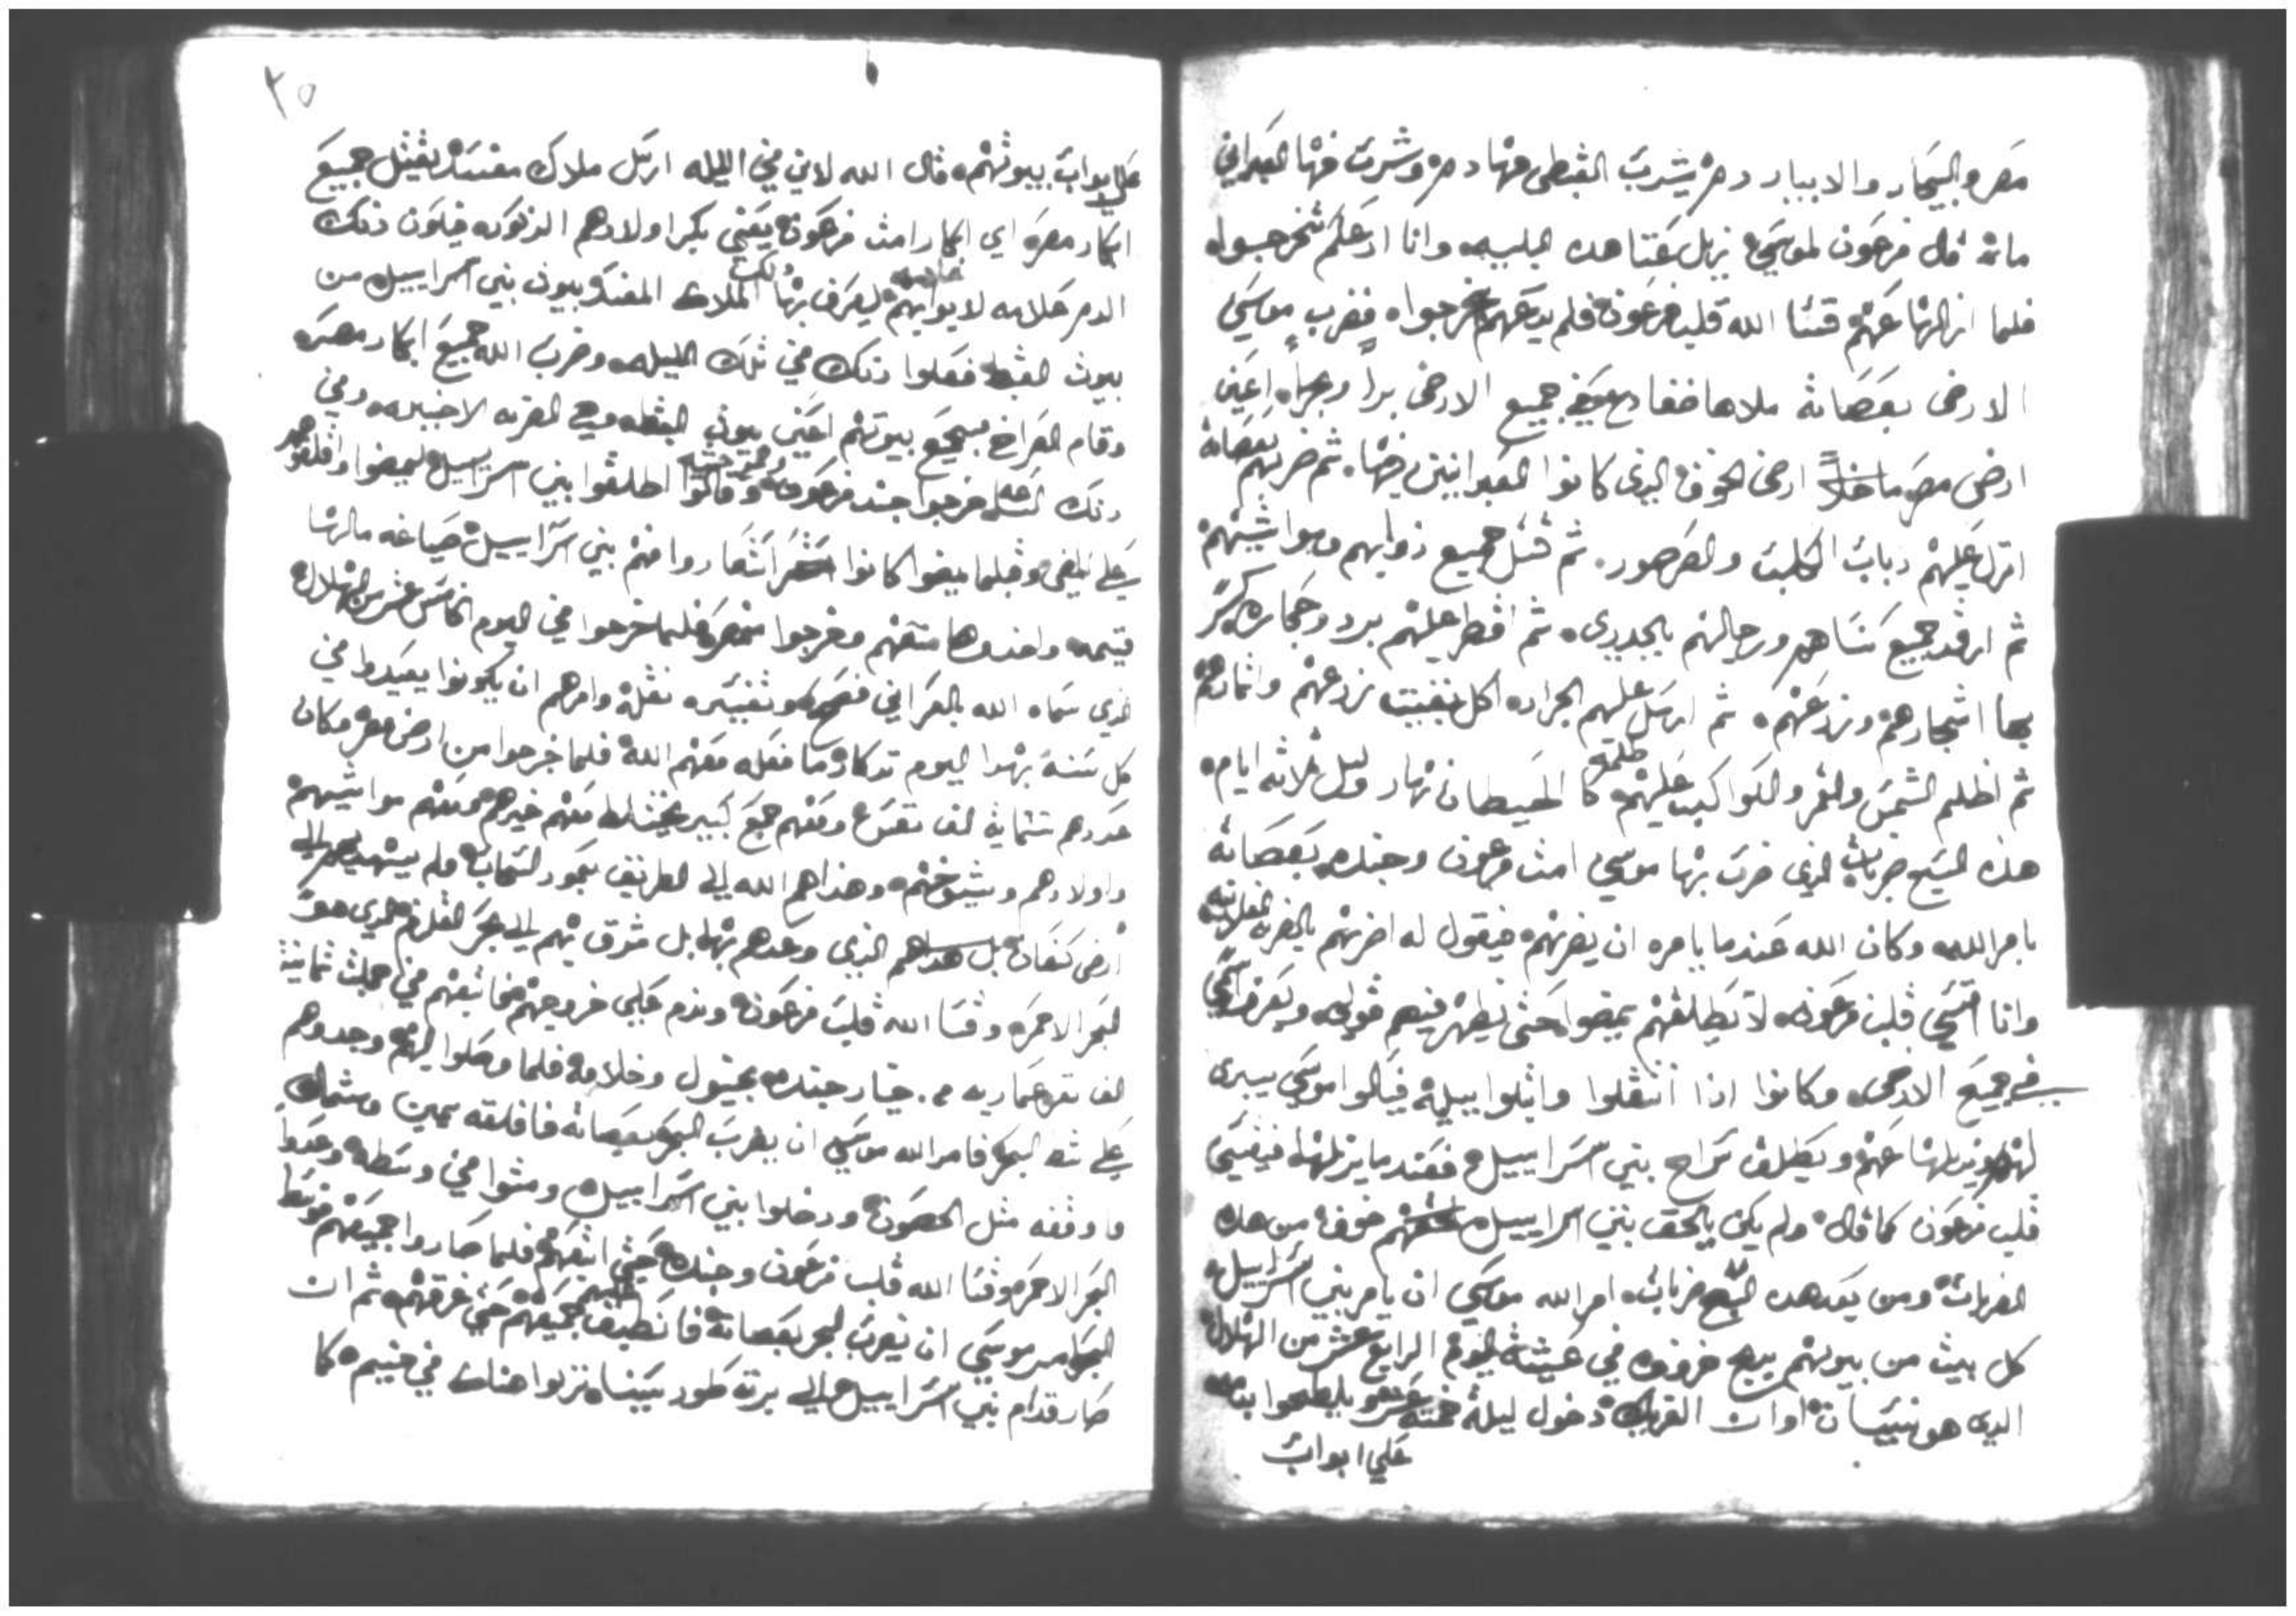 مصر والبحار والابيار دم يشرب القبطي منها دم وشرب منها العبراني
مائه قال فرعون لموسي نزيل عنا هده البليه وانا ادعكم تخرجوا
فلما ازالها عنهم قسا الله قلب فرعون فلم يدعهم يخرجوا فضرب موسي
الارض بعصاته ملاها ضفادع جميع الارض برا وبحرا اعني
ارض مصر ماخلا ارض الخوف الدي كانوا العبرانيين فيها ثم ضربهم بعصاته
انزل عليهم دباب الكلب والصرصور ثم قتل جميع دوابهم ومواشيهم
ثم ارقد جميع نساهم ورجالهم بالجدري ثم اقطر عليهم برد وحجاره كسر
بها اشجارهم وزرعهم ثم ارسل عليهم الجراد اكل بقيت زرعهم واثمارهم
ثم اظلم الشمس والقمر والكواكب عليهم ظلمه كالحيطان نهار وليل ثلاثه ايام
هده السبع ضربات الدي ضرب بها موسي امت فرعون وجنده بعصاته
بامر الله وكان الله عندما يامره ان يضربهم فيقول له اضربهم بالضربه الفلانيه
وانا اقسي قلب فرعون لا يطلقهم يمضوا حتي تظهر فيهم قوتي ويعرف اسمي
في جميع الارض وكانوا ادا اتثقلوا واتلوا ببليه فيقالوا موسي يسري
لهم ويزيلها عنهم ويطلق سراح بني اسراييل فعندما يزيلها فيقسي
قلب فرعون كما قال ولم يكن يالحق بني اسراييل خوف من هده
الضربات ومن بعد هده السبع ضربات امر الله موسي ان يامر بني اسراييل
كل بيت من بيوتهم يدبح خروف في عشيه اليوم الرابع عشر من الهلال
الدي هو نيسان اوان الفريك دخول ليلة خمسة عشر ويلطخوا بدمه
علي ابواب
٢٥
علي ابواب بيوتهم قال الله لاني في الليله ارسل ملاك مفسد يقتل جميع
ابكار مصر اي ابكار امت فرعون يعني بكر اولادهم الدكوره فيكون دلك
الدم علامه لابوابهم ليعرف بها دلك الملاك المفسد بيوت بني اسراييل من
بيوت القبط ففعلوا دلك في تلك الليله وضرب الله جميع ابكار مصر
وقام الصراخ بجميع بيوتهم اعني بيوت القبط وهي الضربه الاخيره وفي
دلك الساعه خرجوا جند فرعون وقالوا اطلقوا بني اسراييل ليمضوا واقلقوهم
علي المضي وقبلما يمضوا كانوا استعاروا منهم بني اسراييل صياغه مالها
قيمه واخدوها معهم وخرجوا من مصر فلما خرجوا في اليوم الخامس عشر من الهلال
الدي سماه الله بالعبراني فصح هو تفسيره نقله وامرهم ان يكونوا يعيدوا في
كل سنه بهدا اليوم تدكار ما فعله معهم الله فلما خرجوا من ارض مصر وكان
عددهم ستماية الف نفس ومعهم جمع كبير يختلط معهم غيرهم ومعهم مواشيهم
واولادهم وشيوخهم وهداهم الله الي الطريق بعمود السحاب ولم يهديهم الي
ارض كنعان الدي وعدهم بها بل شرق بهم الي بحر القلزم الدي هو
البحر الاحمر وقسا الله قلب فرعون وندم علي خروجهم فاتبعهم في ثمانية
الف نفر خيار جنده بخيول وخلافه فلما وصلوا اليهم وجدوهم
علي شط البحر فامر الله موسي ان يضرب البحر بعصاته فافلقه يمين وشمال
واوقفه مثل الحصون ودخلوا بني اسراييل ومشوا في وسطه وعدوا
البحر الاحمر وقسا الله قلب فرعون وجنده حتي اتبعهم فلما صاروا جميعهم في وسط
البحر امر موسي ان يضرب البحر بعصاته فانطبق جميعهم حتي غرقهم ثم ان
صار قدام بني اسراييل الي برية طور سينا ونزلوا هناك في خيم كما